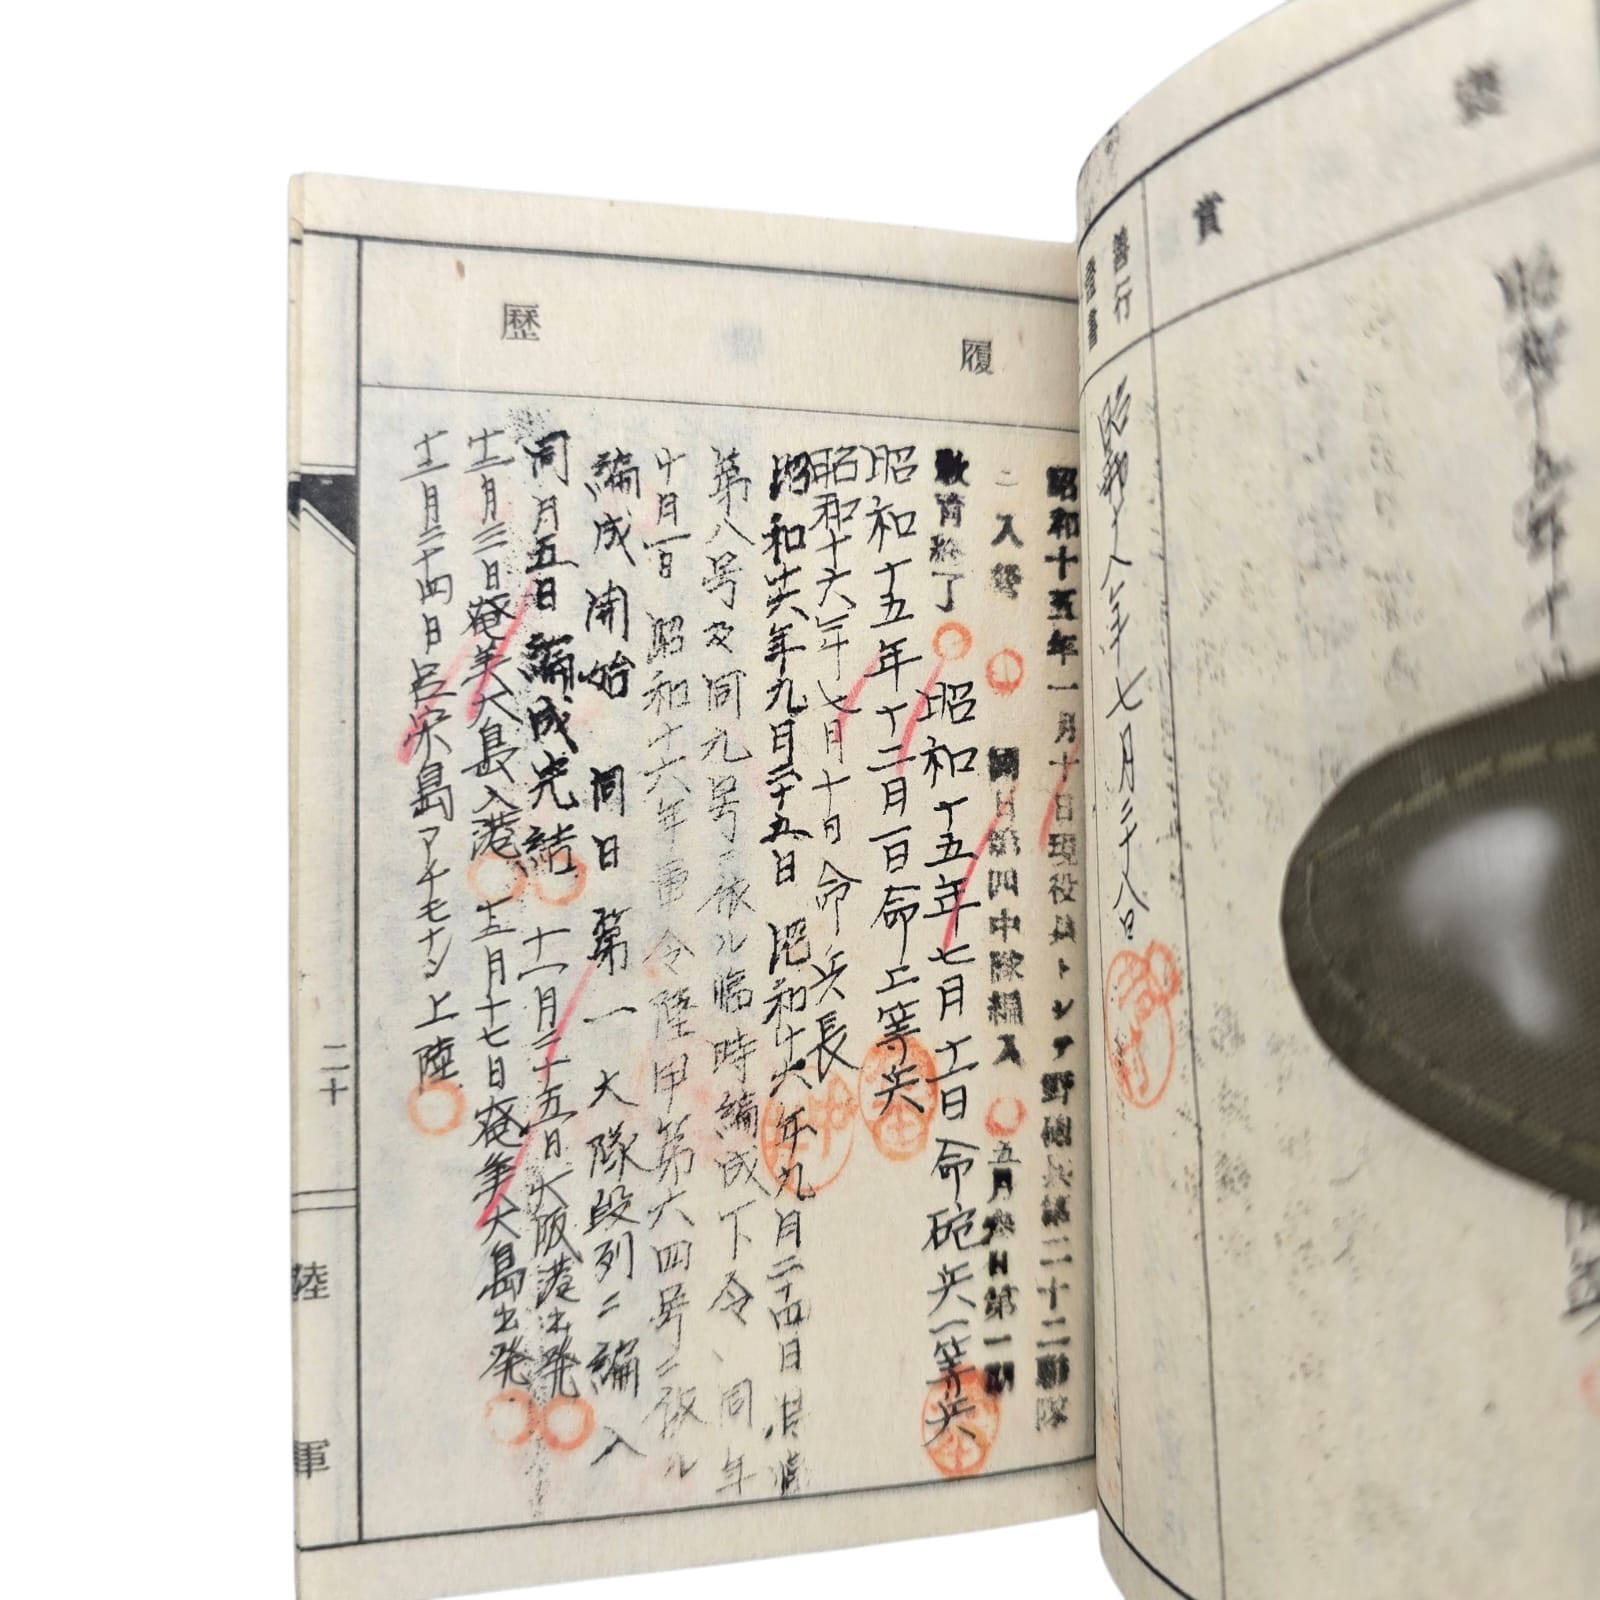 賞
善行
證書
昭和十八年七月二十八日
履歷
昭和十五年一月十日現役兵トシテ野砲兵第二十二聯隊
ニ入營 同日第四中隊編入 五月 日第一期
教育終了 昭和十五年七月十一日命砲兵一等兵
昭和十五年十二月一日命上等兵
昭和十六年七月十日命兵長
昭和十六年九月二十五日 昭和十六年九月二十四日
第八号及同九号ニ依ル臨時編成下令、同年
十月一日 昭和十六年軍令陸甲第六四号ニ依ル
編成開始 同日第一大隊段列ニ編入
同月五日編成完結 十一月二十五日大阪港出発
十二月三日奄美大島入港 十二月十七日奄美大島出発
十二月二十四日呂宋島アチモナン上陸
二十
陸軍